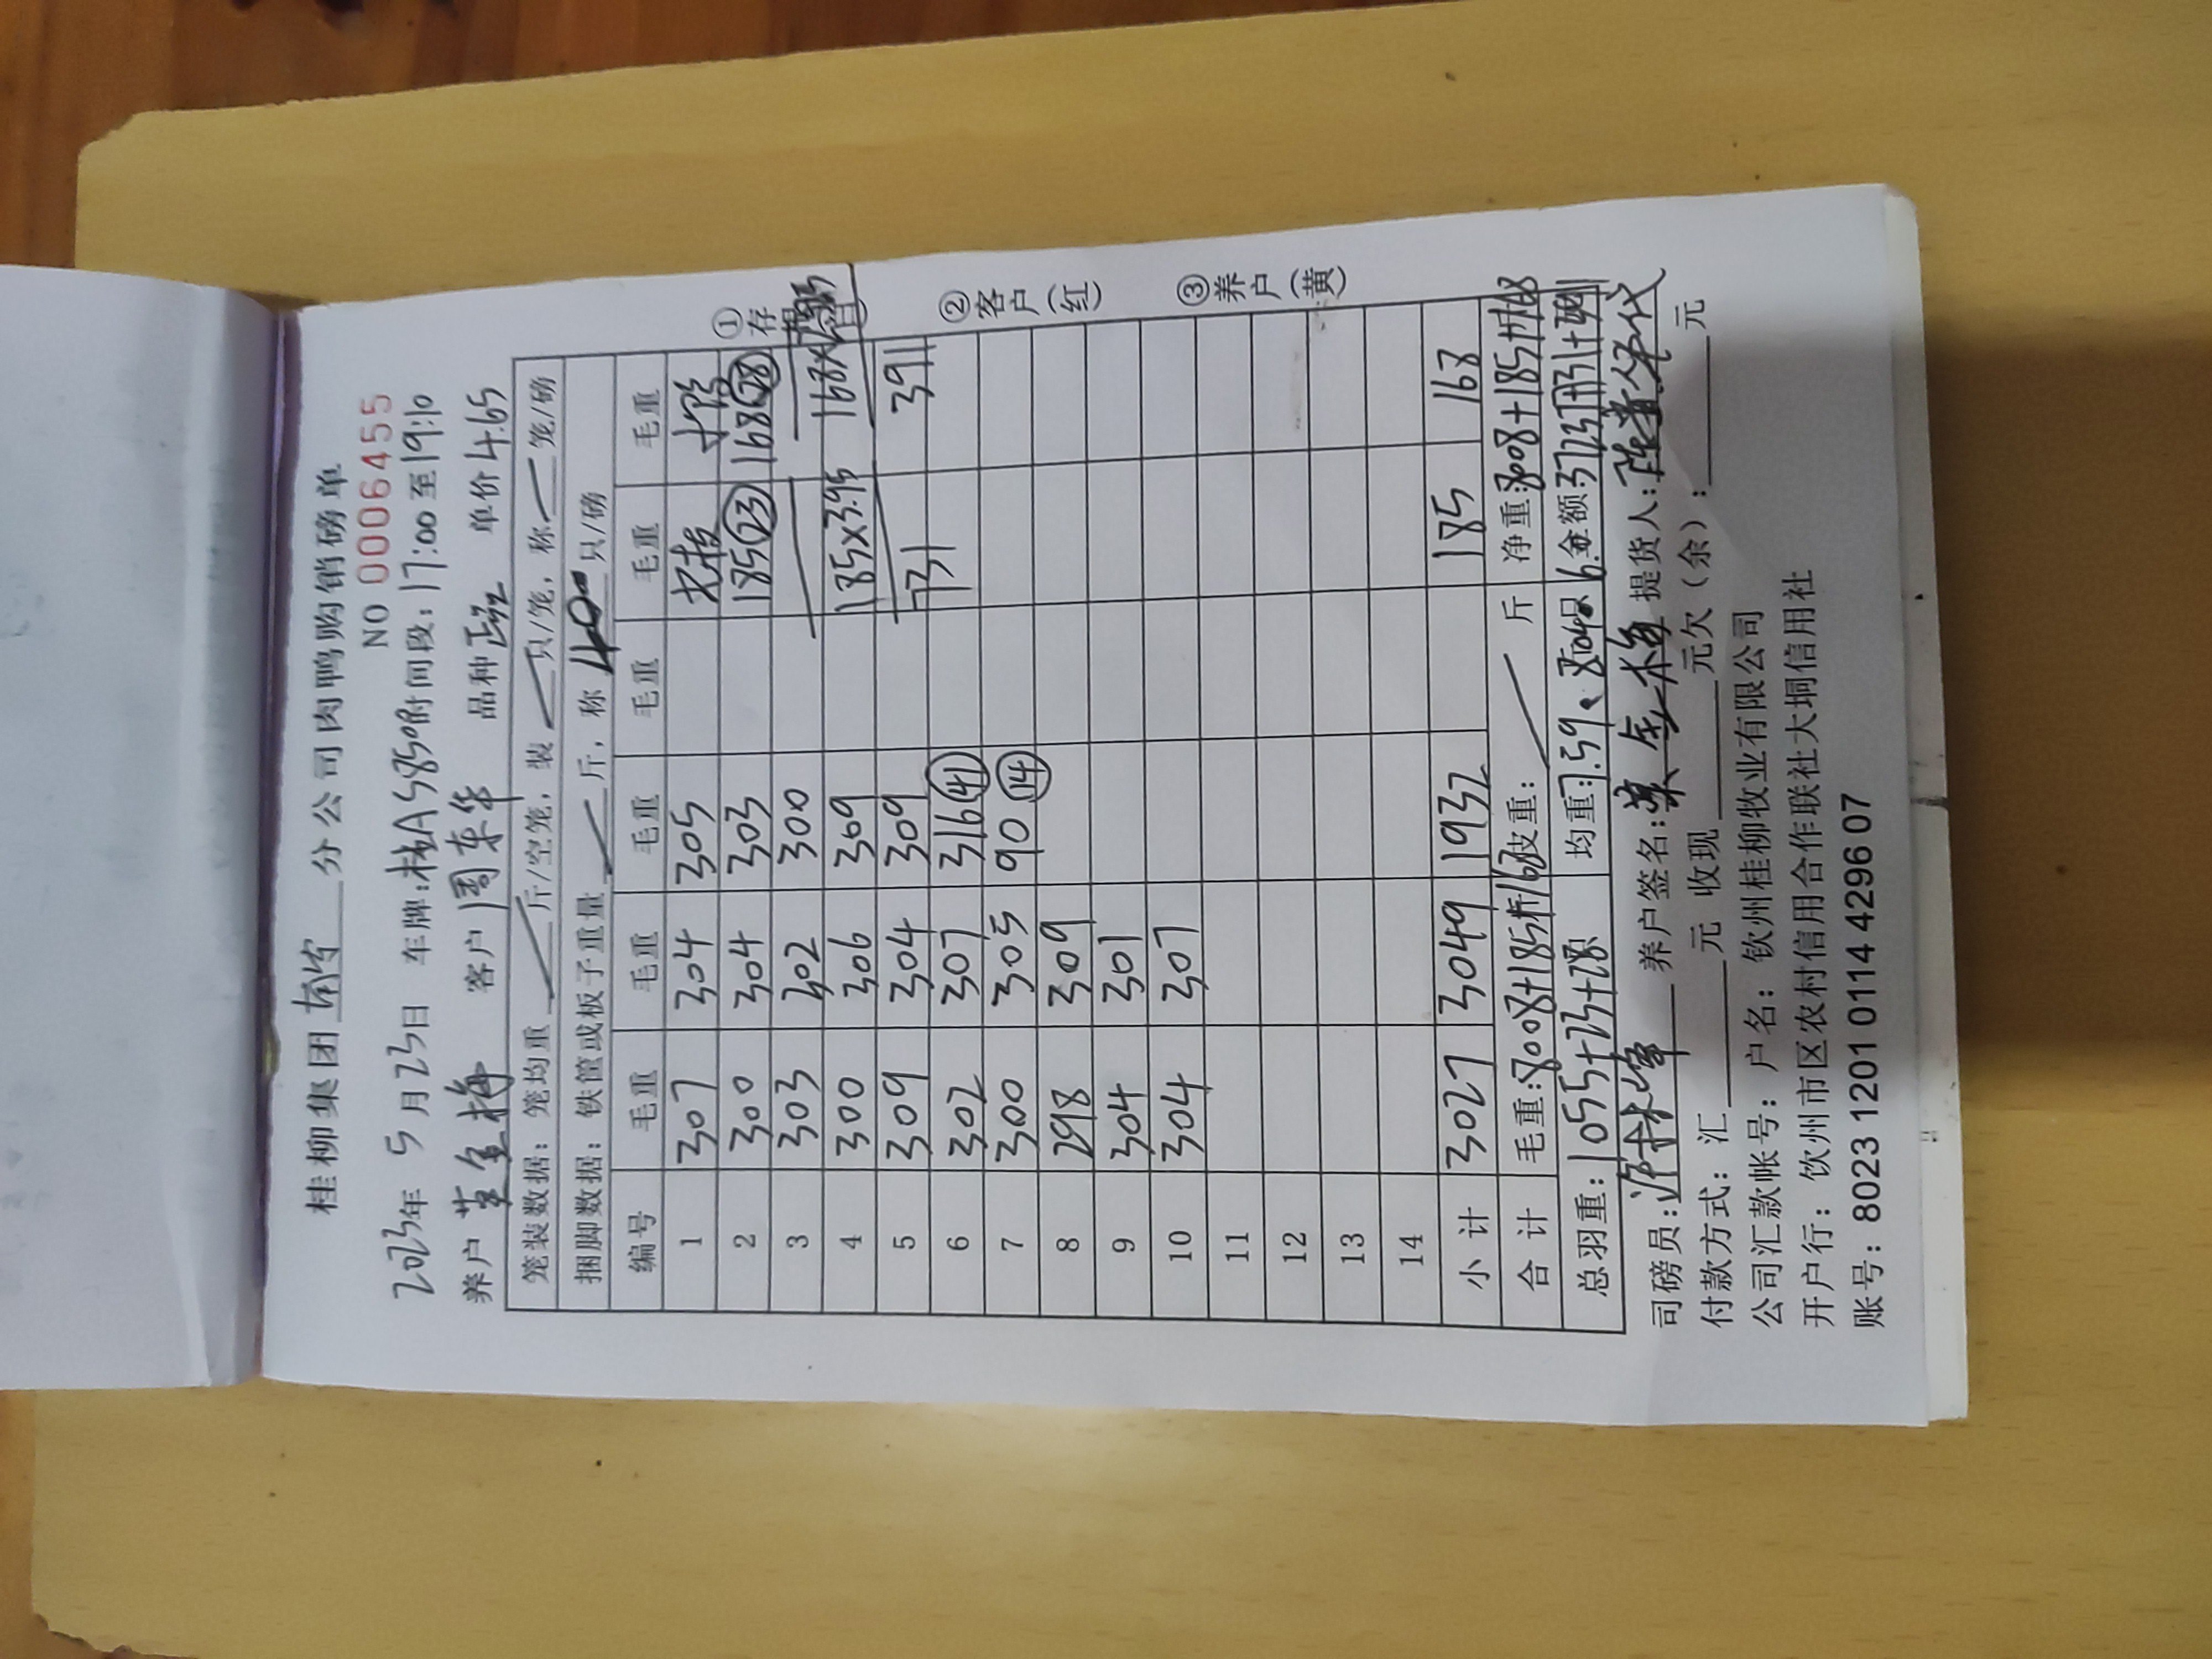 桂柳集团 南宁 分公司肉鸭购销磅单
NO 0006455
2023年 5月23日 车牌:桂AS8509时间段:17:00至19:10
养户 客户 周东华 品种 正江 单价 4.65
笼装数据: 笼均重 斤/空笼, 装 只/笼, 称 笼/磅
捆脚数据: 铁筐或板子重量 斤, 称 40 只/磅
编号 毛重 毛重 毛重 毛重 毛重 毛重
1 307 304 305
2 300 304 303 185 23 168 28
3 303 302 300
4 300 306 309 185×3.95 168×
5 309 304 309
6 302 307 316 41 731 391
7 300 305 90 14
8 298 309
9 304 301
10 304 307
11
12
13
14
小计 3027 3049 1932 185 168
合计 毛重:8008+185+168 皮重: 斤 净重:8008+185+168
总羽重:1055+23+28 均重:7.59 只 金额:37237+731+391
司磅员: 养户签名: 提货人:
付款方式: 汇 元 收现 元欠(余): 元
公司汇款帐号: 户名: 钦州桂柳牧业有限公司
开户行: 钦州市区农村信用合作联社大垌信用社
账号: 8023 1201 0114 4296 07
①存根(白)
②客户(红)
③养户(黄)